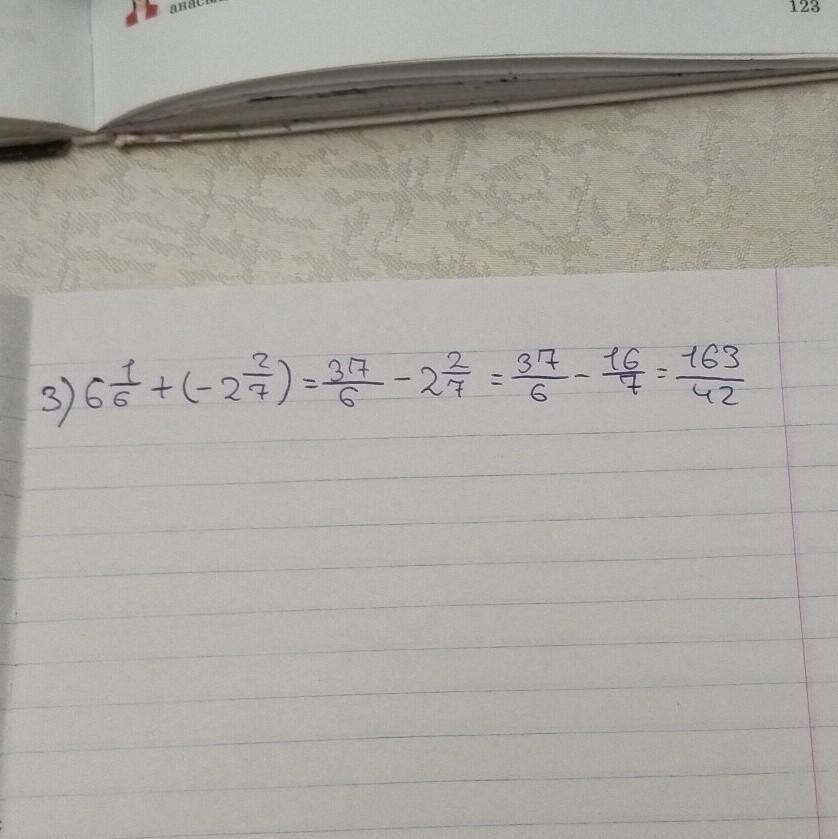 123
3) 6 1/6 + (- 2 2/7) = 37/6 - 2 2/7 = 37/6 - 16/7 = 163/42